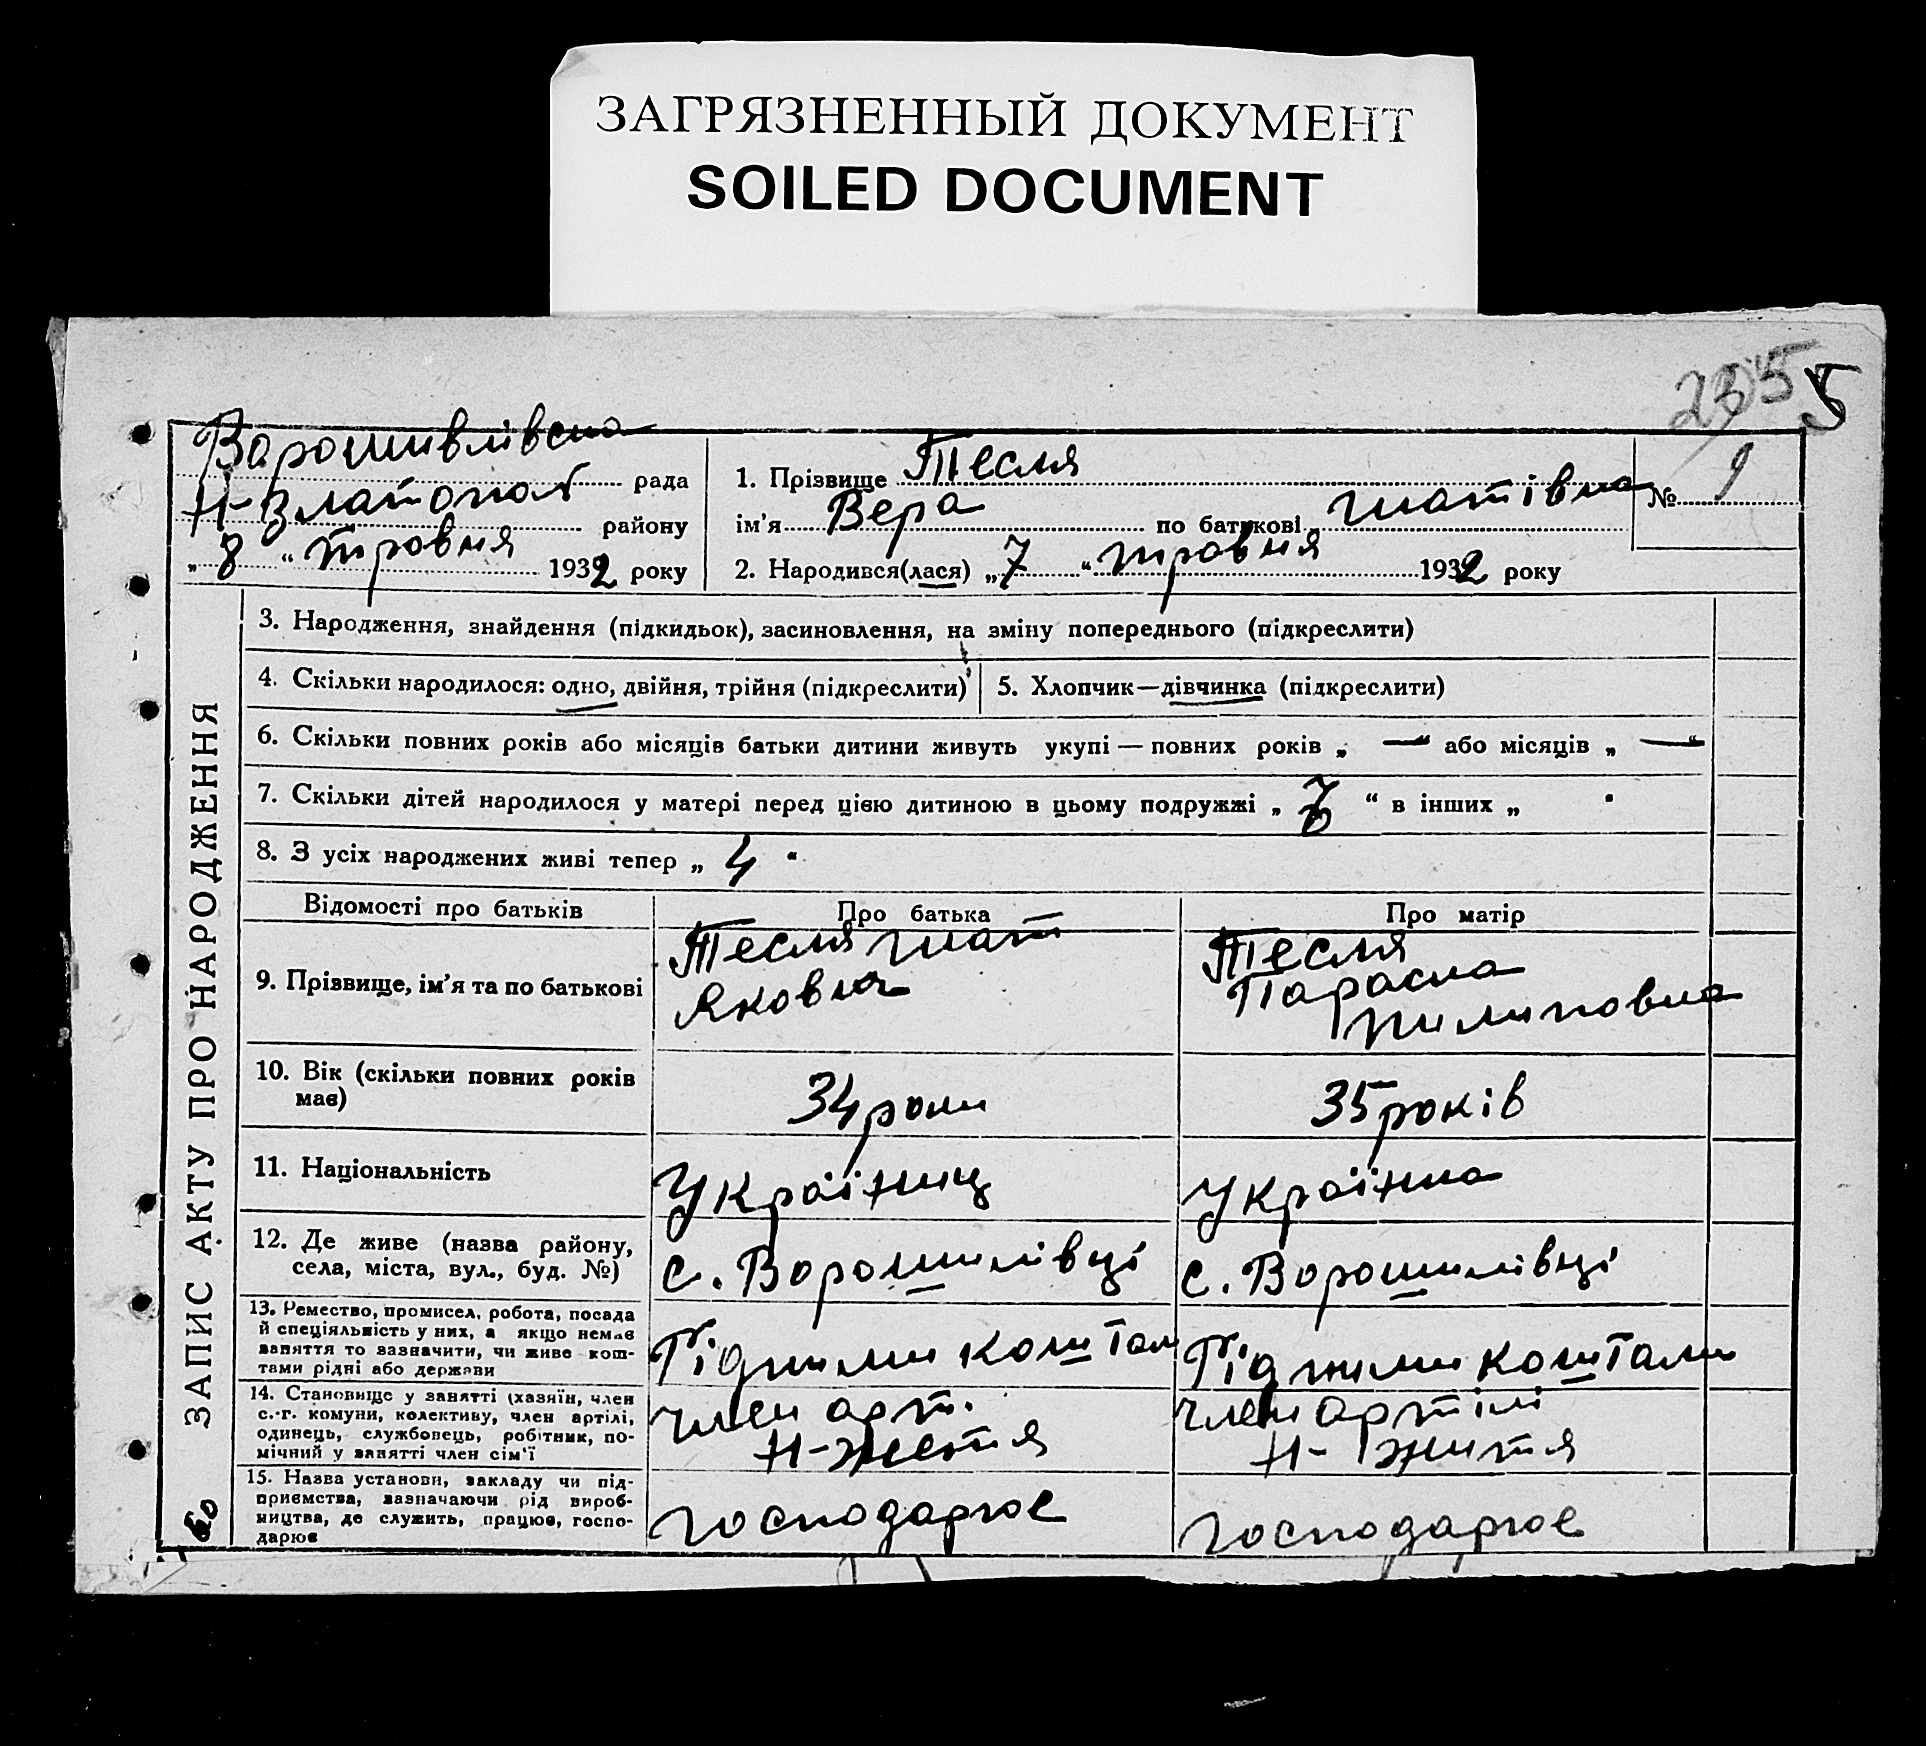 ЗАГРЯЗНЕННЫЙ ДОКУМЕНТ
SOILED DOCUMENT
5
ЗАПИС АКТУ ПРО НАРОДЖЕННЯ
Ворошивлівска
рада
Н-Златопол
району
„ 8 “ травня 1932 року
1. Прізвище Тесля
ім'я Вера по батькові Гнатівна
№ 9
2. Народився(лася) „ 7 “ травня 1932 року
3. Народження, знайдення (підкидьок), засиновлення, на зміну попереднього (підкреслити)
4. Скільки народилося: одно, двійня, трійня (підкреслити)
5. Хлопчик—дівчинка (підкреслити)
6. Скільки повних років або місяців батьки дитини живуть укупі — повних років „ — “ або місяців „ — “
7. Скільки дітей народилося у матері перед цією дитиною в цьому подружжі „ “ в інших „
8. З усіх народжених живі тепер „ 4 “
Відомості про батьків
Про батька
Про матір
9. Прізвище, ім'я та по батькові
Тесля Гнат
Якович
Тесля
Параска
Пилиповна
10. Вік (скільки повних років
має)
34 роки
35 років
11. Національність
Українец
Українка
12. Де живе (назва району,
села, міста, вул., буд. №)
с. Ворошилівці
с. Ворошилівці
13. Ремество, промисел, робота, посада
й спеціяльність у них, а якщо немає
заняття то зазначити, чи живе кош-
тами рідні або держави
Рідними коштам
Рідними коштами
14. Становище у занятті (хазяїн, член
с.-г. комуни, колективу, член артілі,
одинець, службовець, робітник, по-
мічний у занятті член сім'ї
член арт.
Н-життя
член артілі
Н-життя
15. Назва установи, закладу чи під-
приємства, зазначаючи рід вироб-
ництва, де служить, працює, госпо-
дарює
господарює
господарює